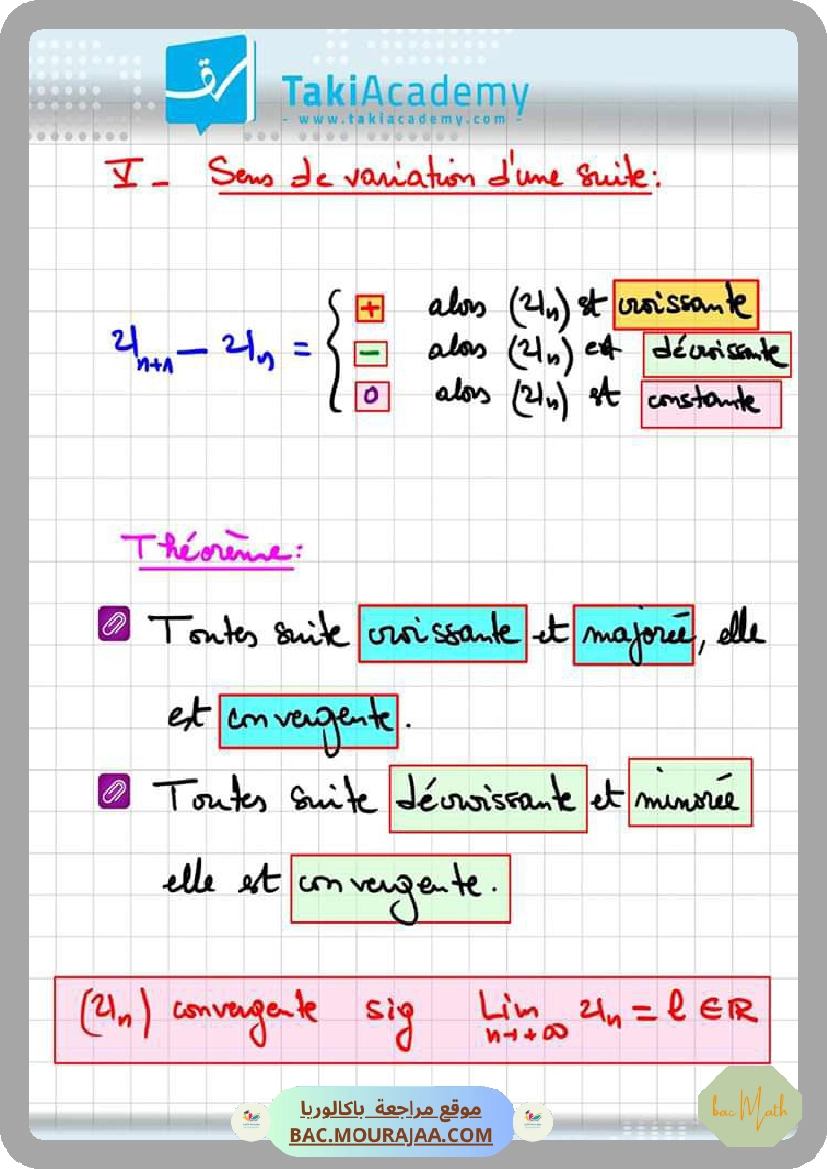 TakiAcademy
- www.takiacademy.com -
V - Sens de variation d'une suite:
+ alors (Un) est croissante
Un+1 - Un = { - alors (Un) est décroissante
0 alors (Un) est constante
Théorème:
Toutes suite croissante et majorée, elle
est convergente.
Toutes suite décroissante et minorée
elle est convergente.
(Un) convergente sig Lim Un = l ∈ ℝ
n→+∞
موقع مراجعة باكالوريا
BAC.MOURAJAA.COM
bac Math